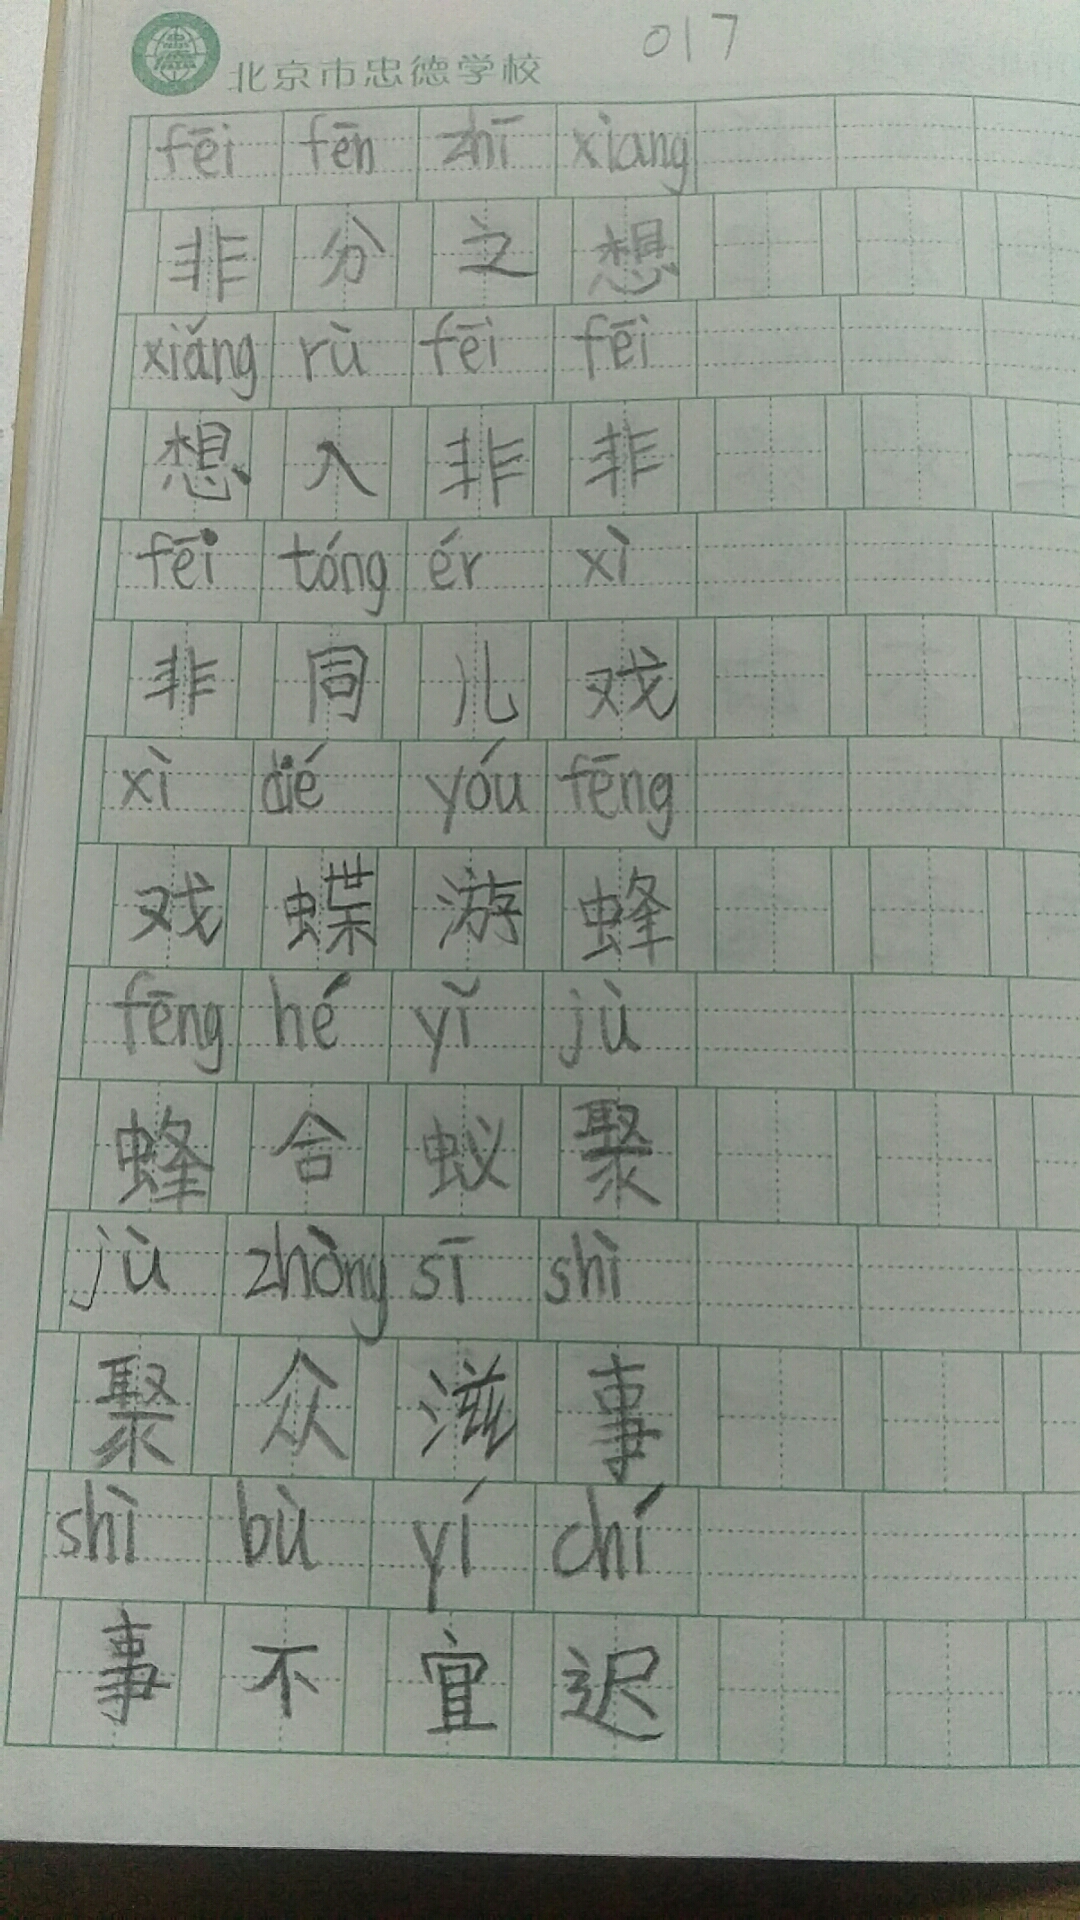 北京市忠德学校
017
fēi fēn zhī xiang
非分之想
xiǎng rù fēi fēi
想入非非
fēi tóng ér xì
非同儿戏
xì dié yóu fēng
戏蝶游蜂
fēng hé yǐ jù
蜂合蚁聚
jù zhòng sī shì
聚众滋事
shì bù yí chí
事不宜迟